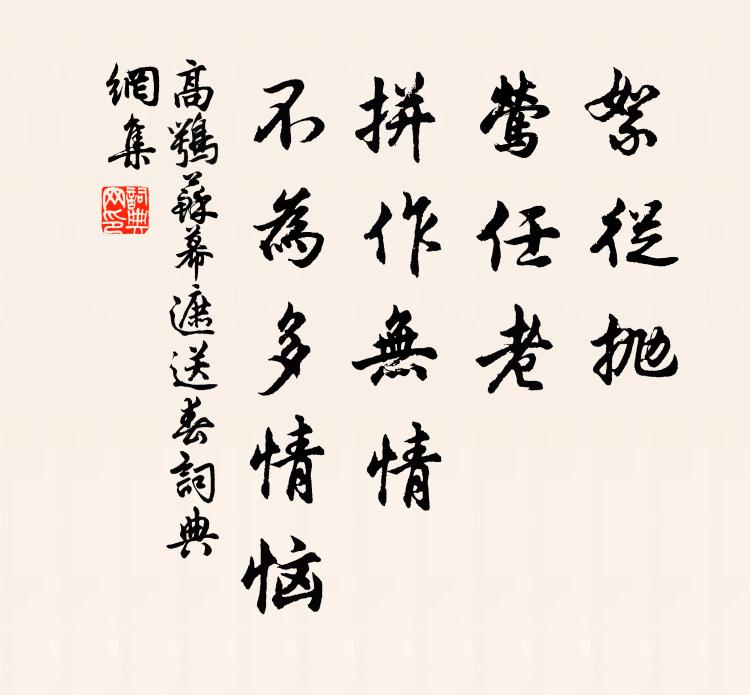 絮從抛
鶯任老
拼作無情
不為多情惱
高鶚蘇幕遮送春詞典
網集
詞典
网印